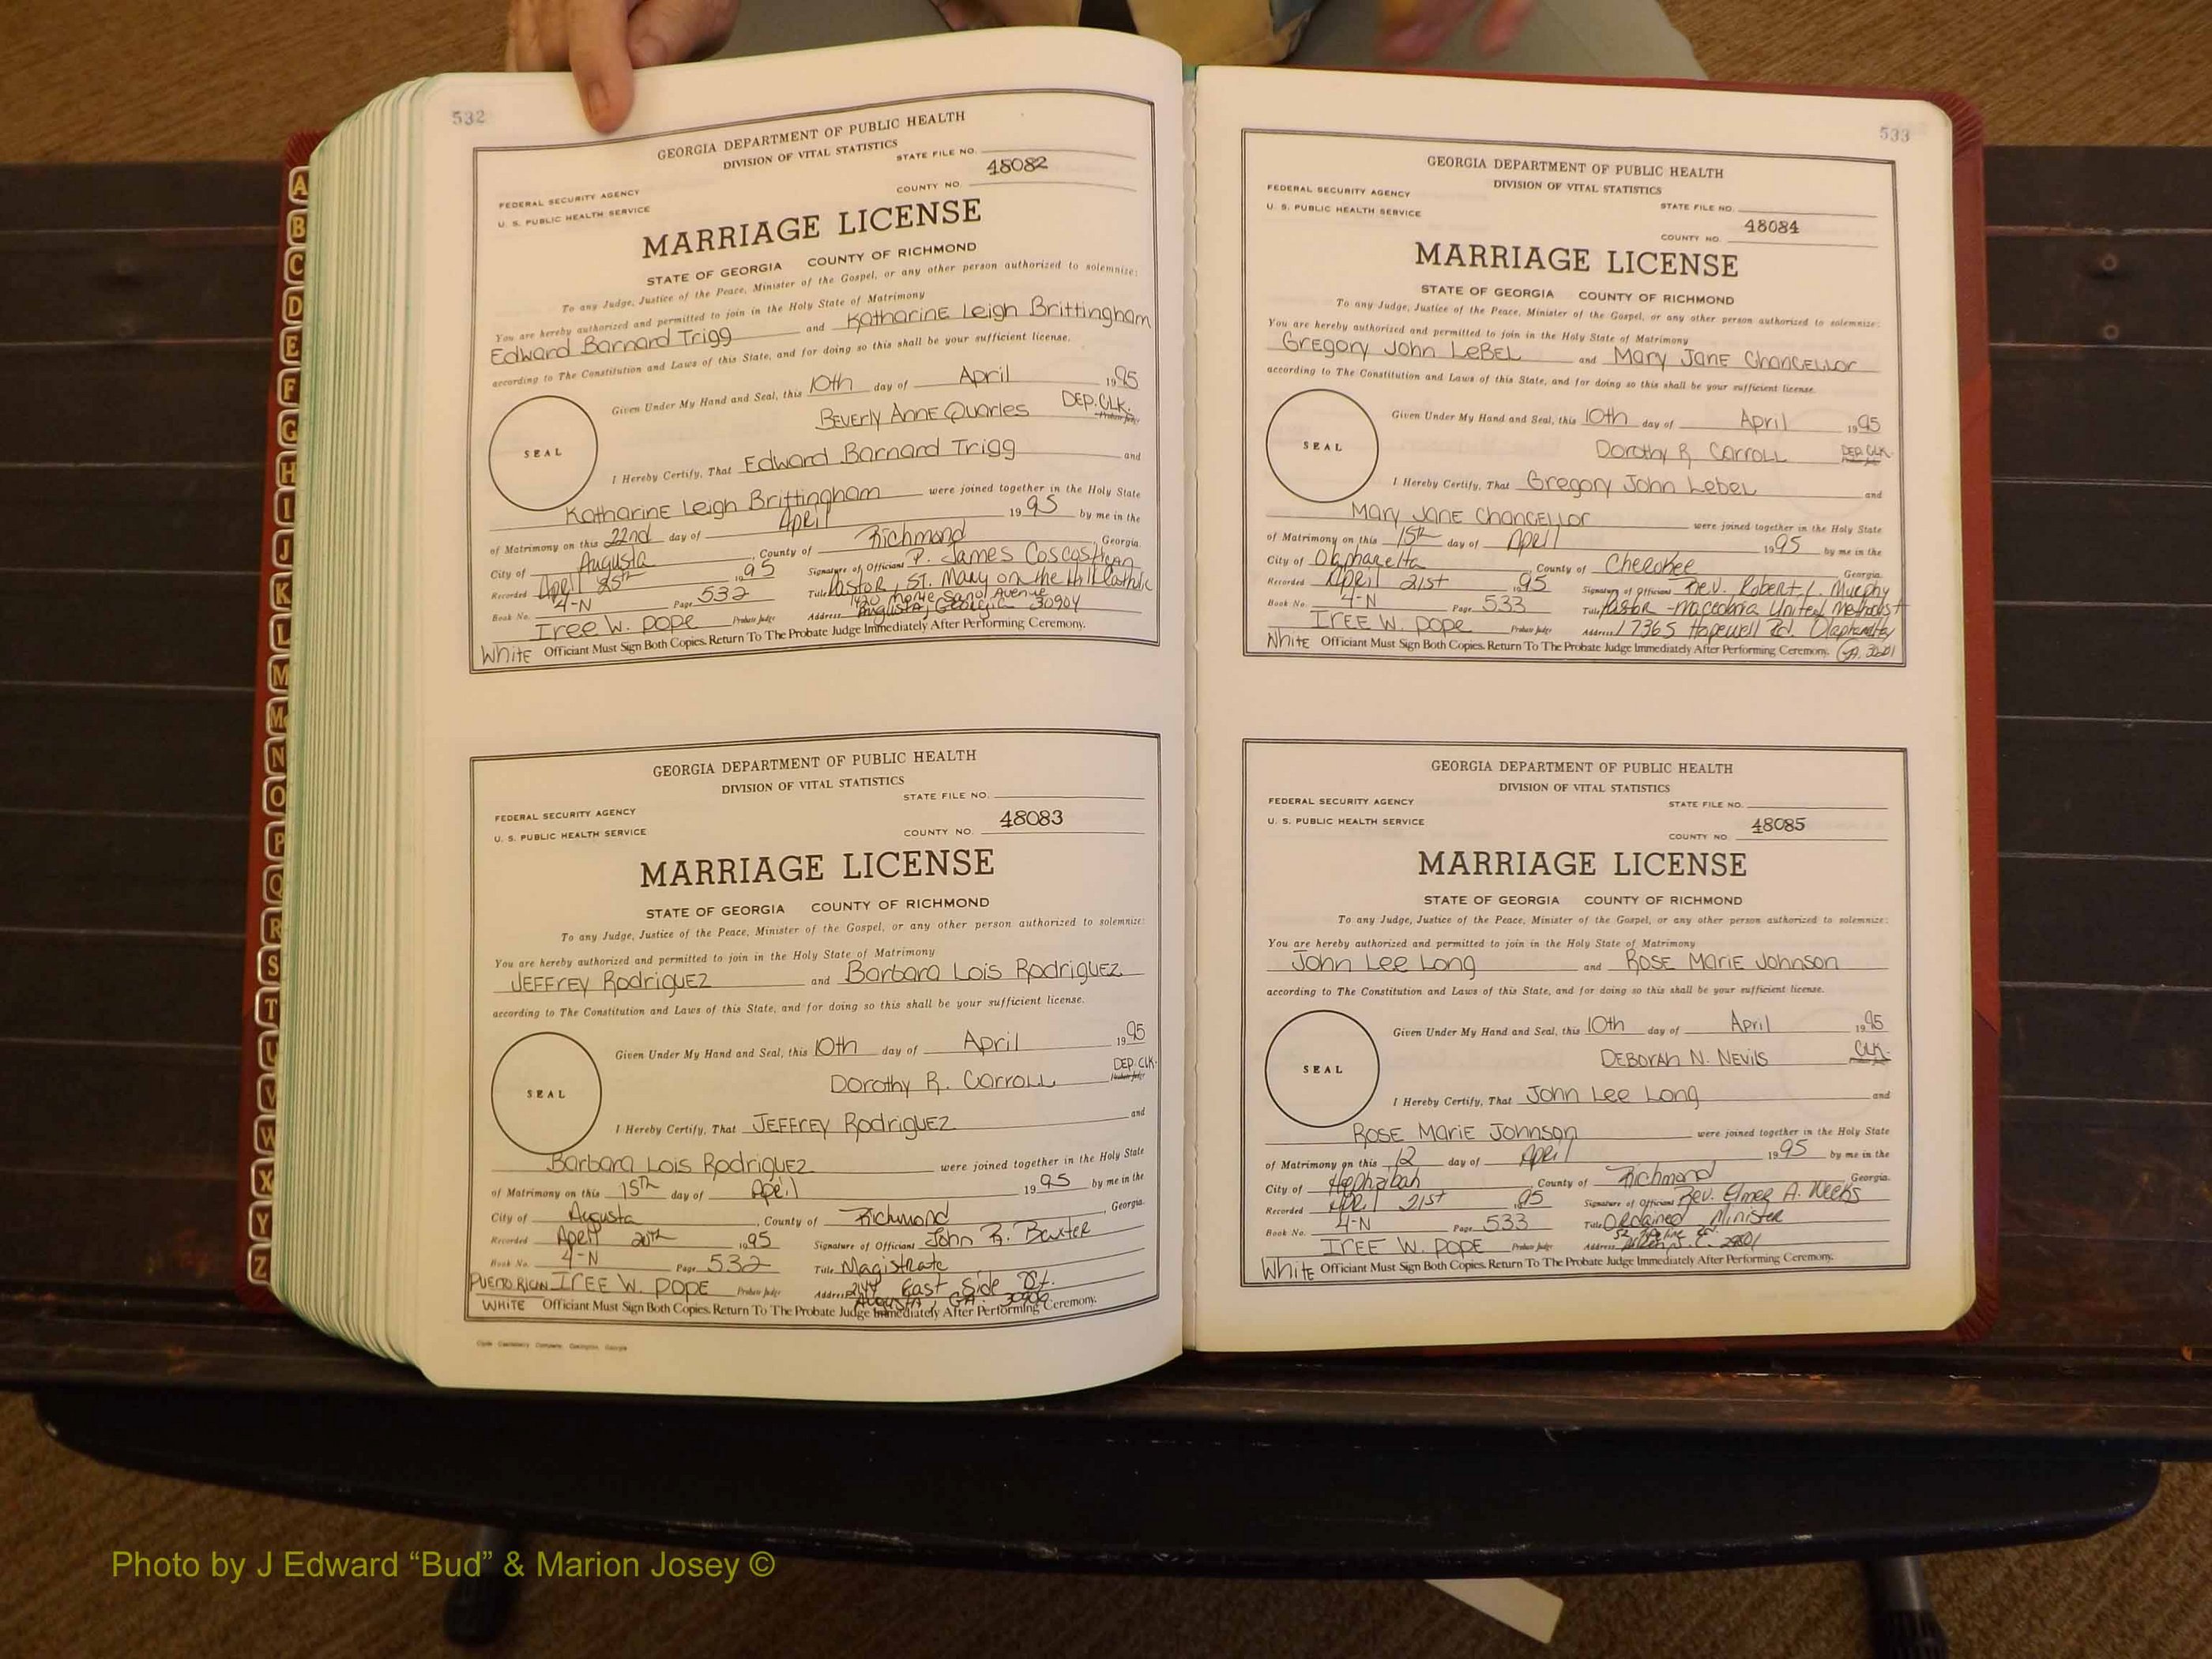 532
GEORGIA DEPARTMENT OF PUBLIC HEALTH
DIVISION OF VITAL STATISTICS
STATE FILE NO.
FEDERAL SECURITY AGENCY
U. S. PUBLIC HEALTH SERVICE
COUNTY NO. 48082
MARRIAGE LICENSE
STATE OF GEORGIA COUNTY OF RICHMOND
To any Judge, Justice of the Peace, Minister of the Gospel, or any other person authorized to solemnize:
You are hereby authorized and permitted to join in the Holy State of Matrimony
Edward Barnard Trigg and Katharine Leigh Brittingham
according to The Constitution and Laws of this State, and for doing so this shall be your sufficient license.
Given Under My Hand and Seal, this 10th day of April 1995
Beverly Anne Quarles DEP. CLK.
SEAL
I Hereby Certify, That Edward Barnard Trigg and
Katharine Leigh Brittingham were joined together in the Holy State
of Matrimony on this 22nd day of April 1995 by me in the
City of Augusta, County of Richmond, Georgia.
Recorded April 25th 1995 Signature of Officiant P. James
Book No. 4-N Page 532 Title Pastor, St. Mary on the Hill Catholic
Iree W. Pope Probate Judge Address Avenue Augusta, Georgia 30904
White Officiant Must Sign Both Copies. Return To The Probate Judge Immediately After Performing Ceremony.
GEORGIA DEPARTMENT OF PUBLIC HEALTH
DIVISION OF VITAL STATISTICS
STATE FILE NO.
FEDERAL SECURITY AGENCY
U. S. PUBLIC HEALTH SERVICE
COUNTY NO. 48083
MARRIAGE LICENSE
STATE OF GEORGIA COUNTY OF RICHMOND
To any Judge, Justice of the Peace, Minister of the Gospel, or any other person authorized to solemnize:
You are hereby authorized and permitted to join in the Holy State of Matrimony
Jeffrey Rodriguez and Barbara Lois Rodriguez
according to The Constitution and Laws of this State, and for doing so this shall be your sufficient license.
Given Under My Hand and Seal, this 10th day of April 1995
Dorothy R. Carroll DEP. CLK.
SEAL
I Hereby Certify, That Jeffrey Rodriguez and
Barbara Lois Rodriguez were joined together in the Holy State
of Matrimony on this 15th day of April 1995 by me in the
City of Augusta, County of Richmond, Georgia.
Recorded April 20th 1995 Signature of Officiant John R. Baxter
Book No. 4-N Page 532 Title Magistrate
Puerto Rican Iree W. Pope Probate Judge Address East Side St. Augusta, GA.
White Officiant Must Sign Both Copies. Return To The Probate Judge Immediately After Performing Ceremony.
533
GEORGIA DEPARTMENT OF PUBLIC HEALTH
DIVISION OF VITAL STATISTICS
FEDERAL SECURITY AGENCY
U. S. PUBLIC HEALTH SERVICE
STATE FILE NO.
COUNTY NO. 48084
MARRIAGE LICENSE
STATE OF GEORGIA COUNTY OF RICHMOND
To any Judge, Justice of the Peace, Minister of the Gospel, or any other person authorized to solemnize:
You are hereby authorized and permitted to join in the Holy State of Matrimony
Gregory John LeBel and Mary Jane Chancellor
according to The Constitution and Laws of this State, and for doing so this shall be your sufficient license.
Given Under My Hand and Seal, this 10th day of April 1995
Dorothy R. Carroll DEP. CLK.
SEAL
I Hereby Certify, That Gregory John Lebel and
Mary Jane Chancellor were joined together in the Holy State
of Matrimony on this 15th day of April 1995 by me in the
City of Olapharetta, County of Cherokee, Georgia.
Recorded April 21st 1995 Signature of Officiant Rev. Robert L. Murphy
Book No. 4-N Page 533 Title Pastor - Macedonia United Methodist
Iree W. Pope Probate Judge Address 17365 Hopewell Rd.
White Officiant Must Sign Both Copies. Return To The Probate Judge Immediately After Performing Ceremony. GA. 30201
GEORGIA DEPARTMENT OF PUBLIC HEALTH
DIVISION OF VITAL STATISTICS
FEDERAL SECURITY AGENCY
STATE FILE NO.
U. S. PUBLIC HEALTH SERVICE
COUNTY NO. 48085
MARRIAGE LICENSE
STATE OF GEORGIA COUNTY OF RICHMOND
To any Judge, Justice of the Peace, Minister of the Gospel, or any other person authorized to solemnize:
You are hereby authorized and permitted to join in the Holy State of Matrimony
John Lee Long and Rose Marie Johnson
according to The Constitution and Laws of this State, and for doing so this shall be your sufficient license.
Given Under My Hand and Seal, this 10th day of April 1995
Deborah N. Nevils CLK.
SEAL
I Hereby Certify, That John Lee Long and
Rose Marie Johnson were joined together in the Holy State
of Matrimony on this 12 day of April 1995 by me in the
City of Hephzibah, County of Richmond, Georgia.
Recorded April 21st 1995 Signature of Officiant Rev. Elmer A. Weeks
Book No. 4-N Page 533 Title Ordained Minister
Iree W. Pope Probate Judge Address Aiken, S.C.
White Officiant Must Sign Both Copies. Return To The Probate Judge Immediately After Performing Ceremony.
A
B
C
D
E
F
G
H
I
J
K
L
M
Mc
N
O
P
Q
R
S
T
U
V
W
X
Y
Z
Photo by J Edward “Bud” & Marion Josey ©